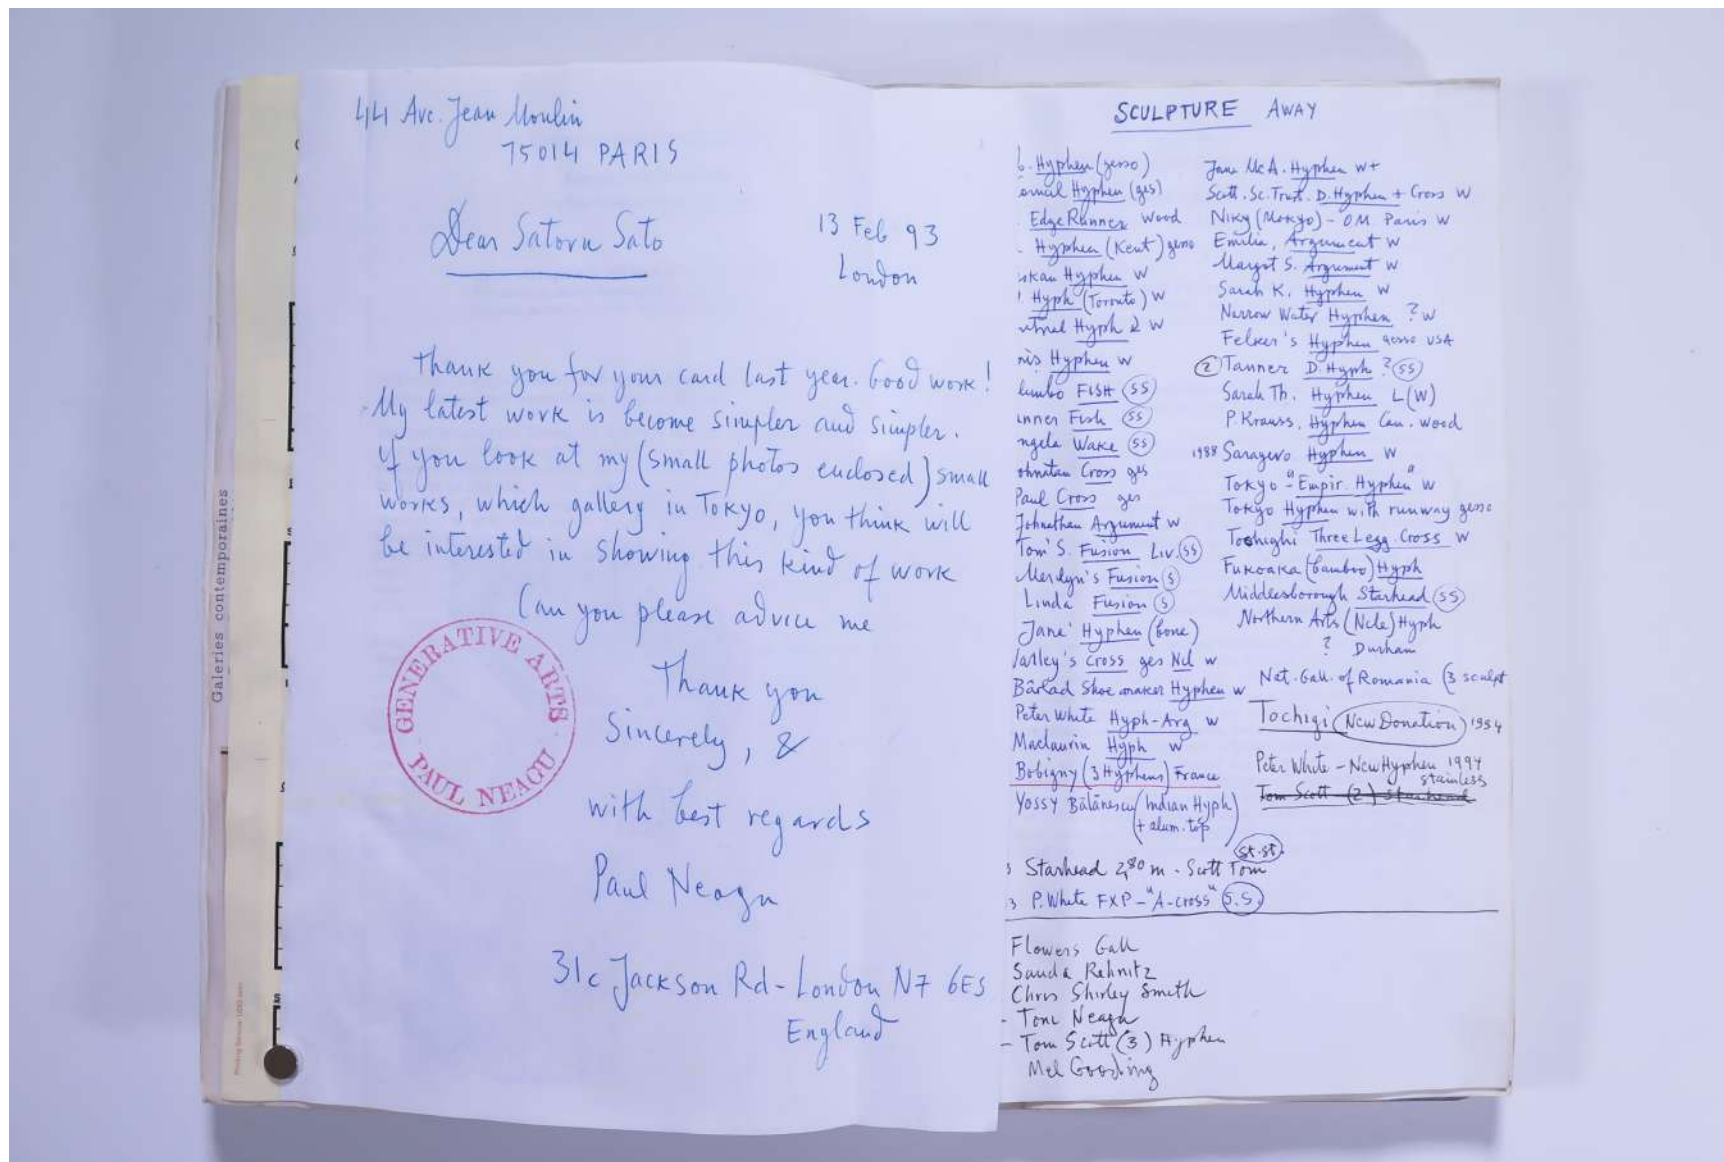 44 Avc. Jean Moulin
75014 PARIS
Dear Satoru Sato
13 Feb 93
London
Thank you for your card last year. Good work!
My latest work is become simpler and simpler.
if you look at my (small photos enclosed) small
works, which gallery in Tokyo, you think will
be interested in showing this kind of work
Can you please advice me
Thank you
Sincerely, &
with best regards
Paul Neagu
31c Jackson Rd - London N7 6ES
England
GENERATIVE ARTS
PAUL NEAGU
Galeries contemporaines
SCULPTURE AWAY
Hyphen (gesso)
Hyphen (ges)
Edge Runner Wood
Hyphen (Kent) gesso
Hyphen W
Hyph (Toronto) W
Hyph 2 W
Hyphen W
FISH (SS)
Fish (SS)
Wake (SS)
Cross ges
Paul Cross ges
Johnathan Argument W
Tom's S. Fusion Liv. (SS)
Merilyn's Fusion (S)
Linda Fusion (S)
Jane' Hyphen (bone)
Cross ges Ncl W
Bârlad Shoe maker Hyphen W
Peter White Hyph-Arg W
Maclaurin Hyph W
Bobigny (3 Hyphens) France
Yossy Bălănescu (Indian Hyph
+ alum. top)
St.St.
Starhead 2,80 m - Scott Tom
P. White FXP - "A-cross" S.S.
Jane McA. Hyphen W+
Scott. Sc. Trust. D. Hyphen + Cross W
Niky (Mokyo) - OM Paris W
Emilia, Argument W
Margot S. Argument W
Sarah K. Hyphen W
Narrow Water Hyphen ? W
Felker's Hyphen gesso USA
(2) Tanner D. Hyph ? (SS)
Sarah Th. Hyphen L (W)
P. Krauss, Hyphen Can. Wood
1988 Saragevo Hyphen W
Tokyo - "Empir. Hyphen" W
Tokyo Hyphen with runway gesso
Toshighi Three Legg. Cross W
Fukoaka (bamboo) Hyph
Middlesborough Starhead (SS)
Northern Arts (Ncle) Hyph
? Durham
Nat. Gall. of Romania (3 sculpt
Tochigi (New Donation) 1994
Peter White - New Hyphen 1994
stainless
Tom Scott (2) Starhead
Flowers Gall
Sanda Rehnitz
Chris Shirley Smith
- Toni Neagu
- Tom Scott (3) Hyphen
Mel Gooding